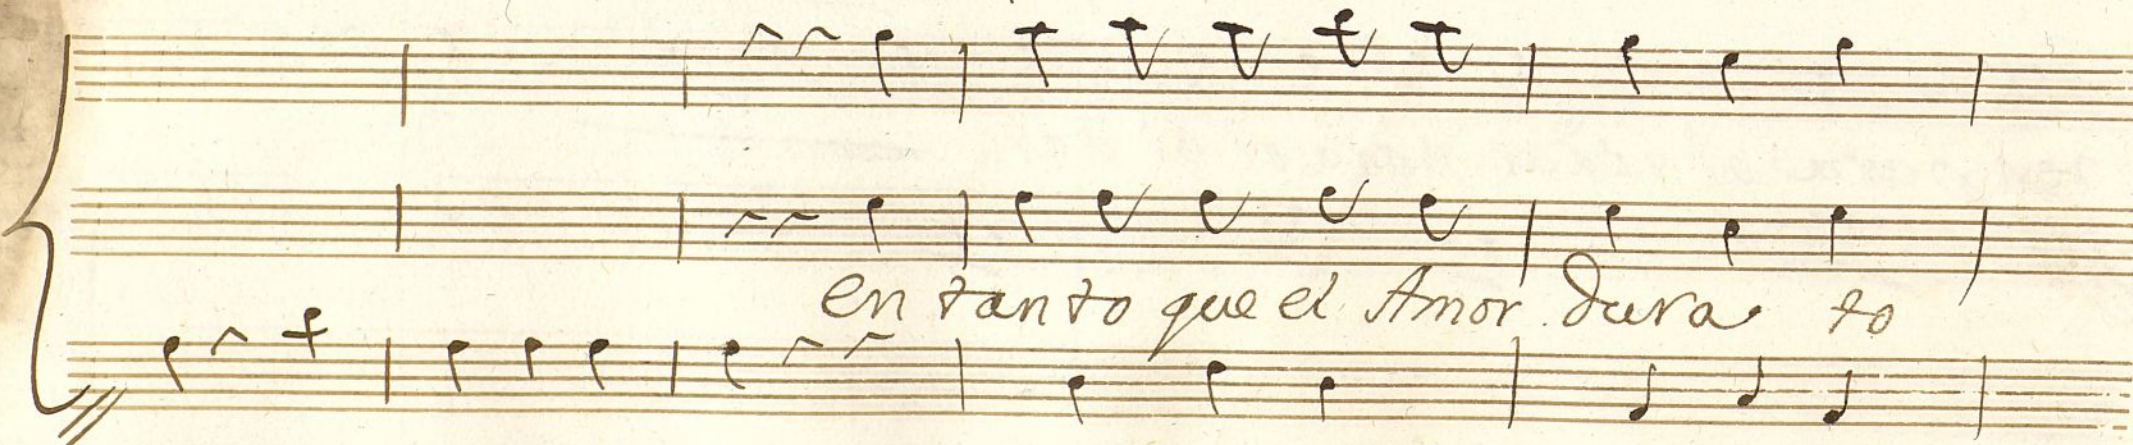 en tanto que el Amor dura to